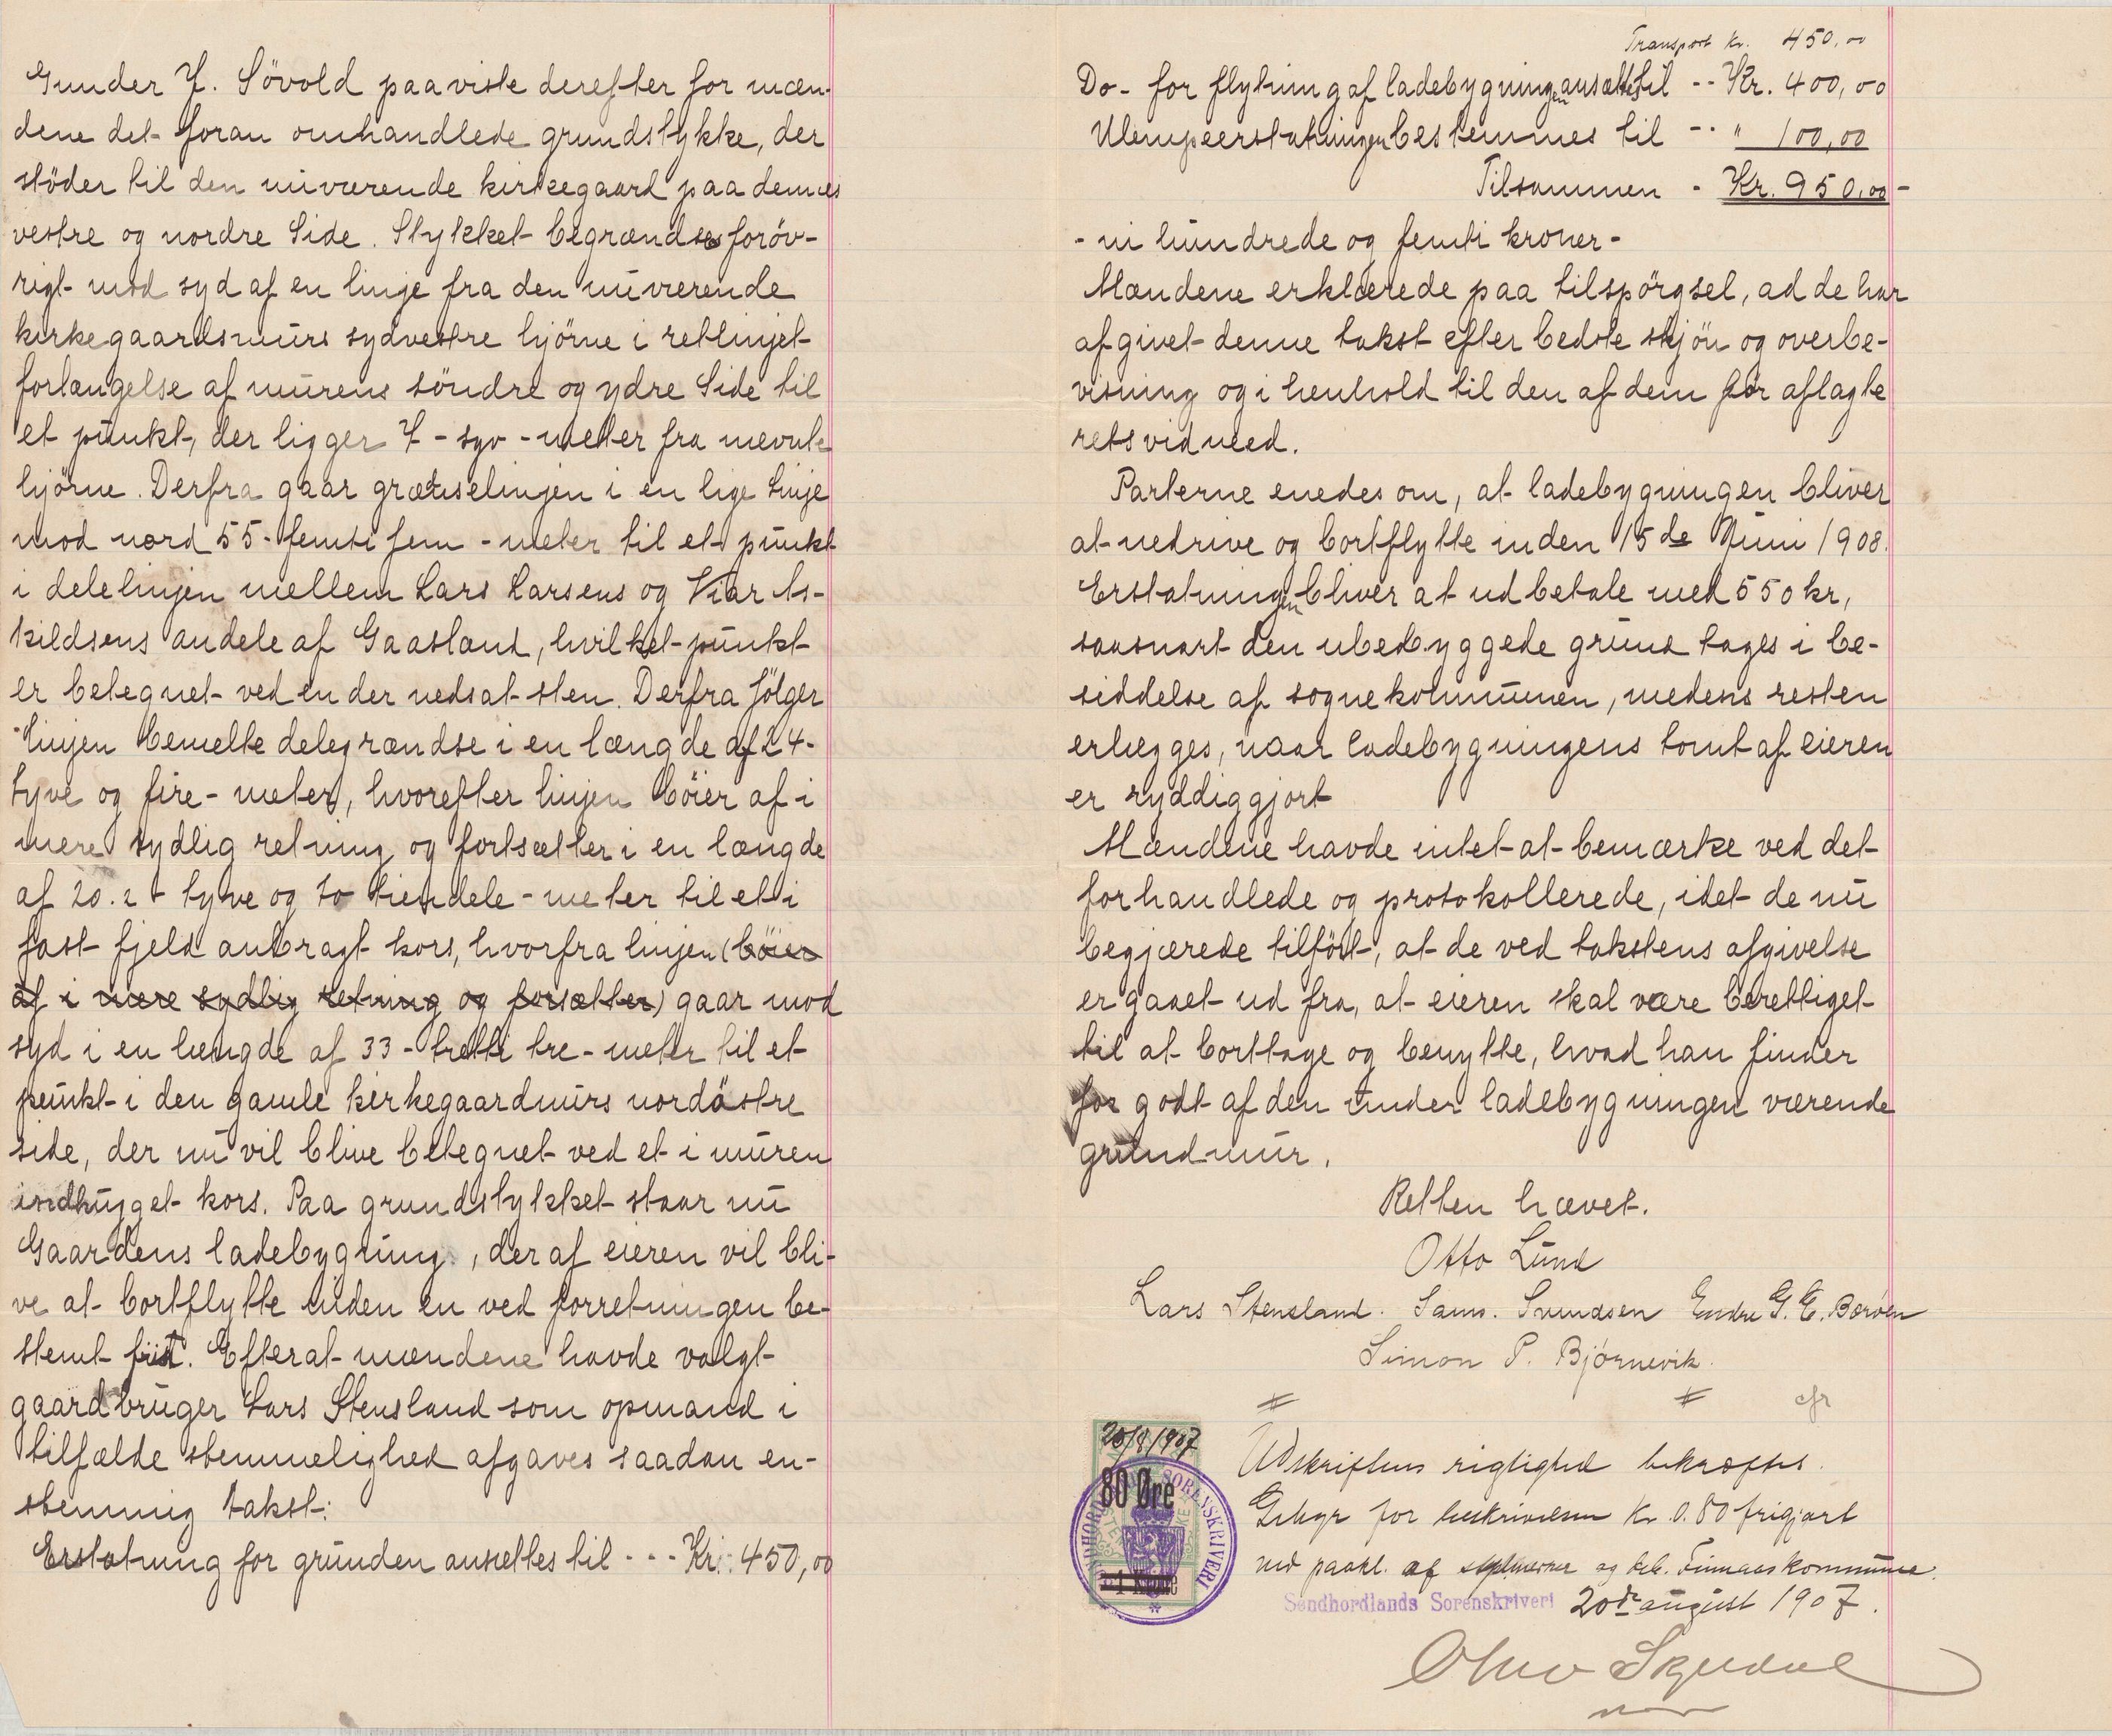 Gunder J. Sövold paaviste derefter for mæn-
dene det foran omhandlede grundstykke, der
stöder til den nuværende kirkegaard paa dennes
vestre og nordre Side. Stykket begrændses forøv-
rigt mod syd af en linje fra den nuværende
kirkegaardsmurs sydvestre hjörne i retlinjet
forlængelse af murens söndre og ydre Side til
et punkt, der ligger 7 - syv - meter fra nævnte
hjörne. Derfra gaar grænselinjen i en lige Linje
mod nord 55 - femti fem - meter til et punkt
i delelinjen mellem Lars Larsens og Viar As-
kildsens andele af Gaasland, hvilket punkt
er betegnet ved en der nedsat sten. Derfra følger
linjen bemelte delegrændse i en længde af 24-
tyve og fire - meter, hvorefter linjen böier af i
mere sydlig retning og fortsætter i en længde
af 20.2 - tyve og to tiendele - meter til et i
fast fjeld anbragt kors, hvorfra linjen (böier
af i mere sydlig retning og forsætter) gaar mod
syd i en længde af 33 - tretti tre - meter til et
punkt i den gamle kirkegaardmurs nordöstre
side, der nu vil blive betegnet ved et i muren
indhugget kors. Paa grundstykket staar nu
Gaardens ladebygning, der af eieren vil bli-
ve at bortflytte inden en ved forretningen be-
stemt frist. Efterat mændene havde valgt
gaardbruger Lars Stensland som opmand i
tilfælde stemmelighed afgaves saadan en-
stemmig takst:
Erstatning for grunden ansættes til - - - Kr. 450,00
Transport kr. 450,00
Do - for flytning af ladebygningen ansættes til - - Kr. 400,00
Ulempeerstatningen bestemmes til - - " 100,00
Tilsammen - Kr. 950,00 -
- ni hundrede og femti kroner -
Mændene erklærede paa tilspörgsel, ad de har
afgivet denne takst efter bedste skjön og overbe-
visning og i henhold til den af dem för aflagte
retsvidneed.
Parterne enedes om, at ladebygningen bliver
at nedrive og bortflytte inden 15de Juni 1908.
Erstatningen bliver at udbetale med 550 kr,
saasnart den ubebyggede grund tages i be-
siddelse af sognekommunen, medens resten
erlægges, naar ladebygningens tomt af eieren
er ryddiggjort
Mændene havde intet at bemærke ved det
forhandlede og protokollerede, idet de nu
begjærede tilfört, at de ved takstens afgivelse
er gaaet ud fra, at eieren skal være berettiget
til at borttage og benytte, hvad han finder
for godt af den under ladebygningen værende
grundmur.
Retten hævet.
Otto Lund
Lars Stensland. Sams. Svendsen Endre G. E. Børøen
Simon P. Bjørnevik.
cfr
20/8/1907
80 Øre
1 Krone
SØNDHORDLANDS SORENSKRIVERI
Udskriftens rigtighed bekræftes.
Gebyr for beskrivelsen Kr 0.80 frigjort
ved paakl. af stplmærker og deb. Finnaas kommune.
Søndhordlands Sorenskriveri 20de august 1907.